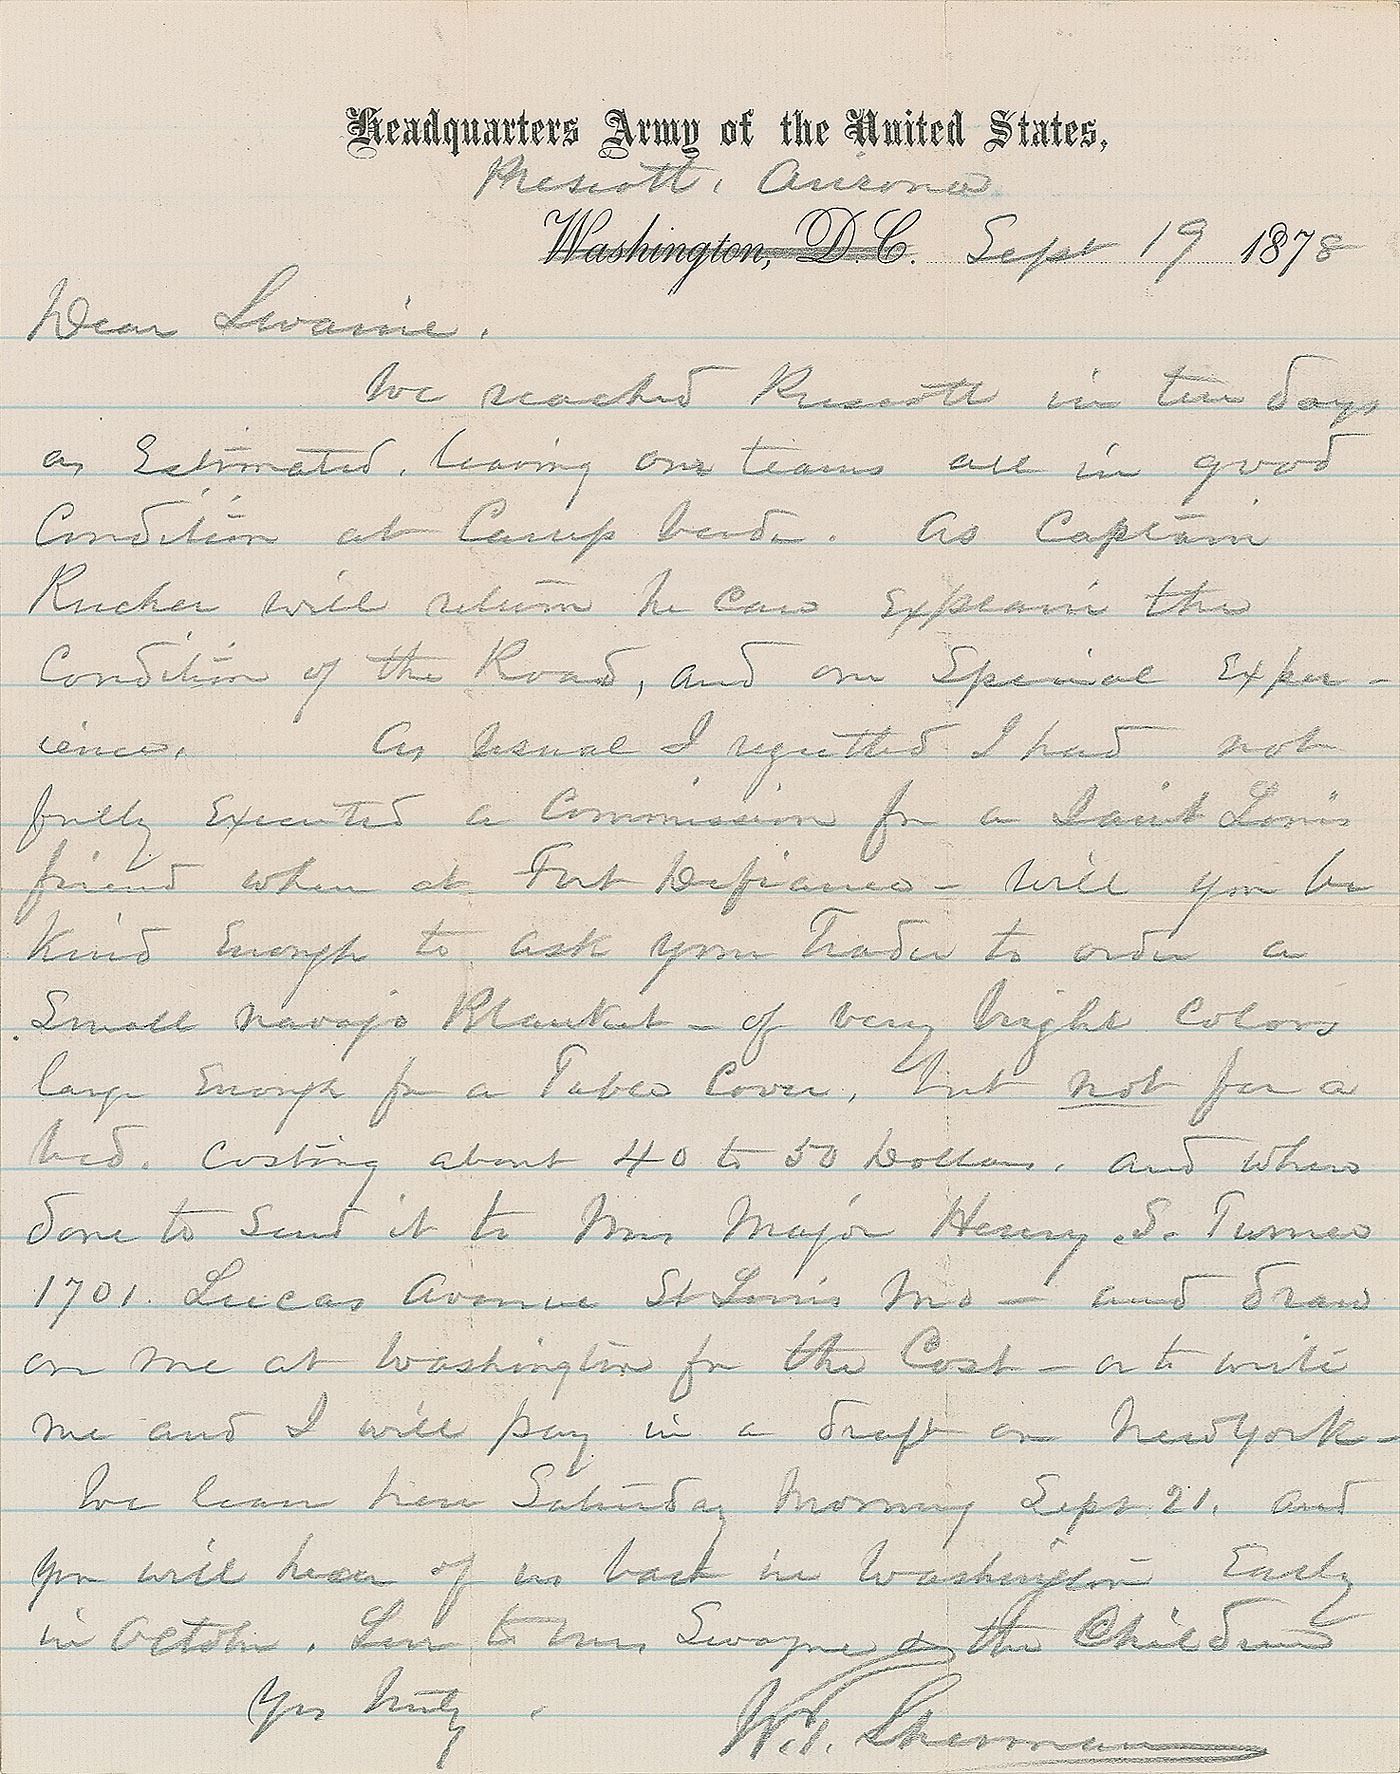 Headquarters Army of the United States,
Prescott, Arizona
Washington, D.C. Sept 19 1878
Dear Swaine.
We reached Prescott in ten days
as Estimated, leaving our teams all in good
Condition at Camp Verde. As Captain
Rucker will return he can Explain the
Condition of the Road, and our Special Exper-
ience. As usual I regretted I had not
fully Executed a Commission for a Saint Louis
friend when at Fort Defiance - Will you be
Kind Enough to ask your Trader to order a
Small Navajo Blanket - of very bright Colors
large Enough for a Table Cover, but not for a
bed. Costing about 40 to 50 Dollars. and when
done to Send it to Mrs Major Henry S. Turner
1701. Lucas Avenue St Louis Mo - and draw
on me at Washington for the Cost - or to write
me and I will pay in a draft on New York -
We leave here Saturday Morning Sept 21. and
you will hear of us back in Washington Early
in October. Love to Mrs Swayne & the Children
Yrs truly,
W.T. Sherman